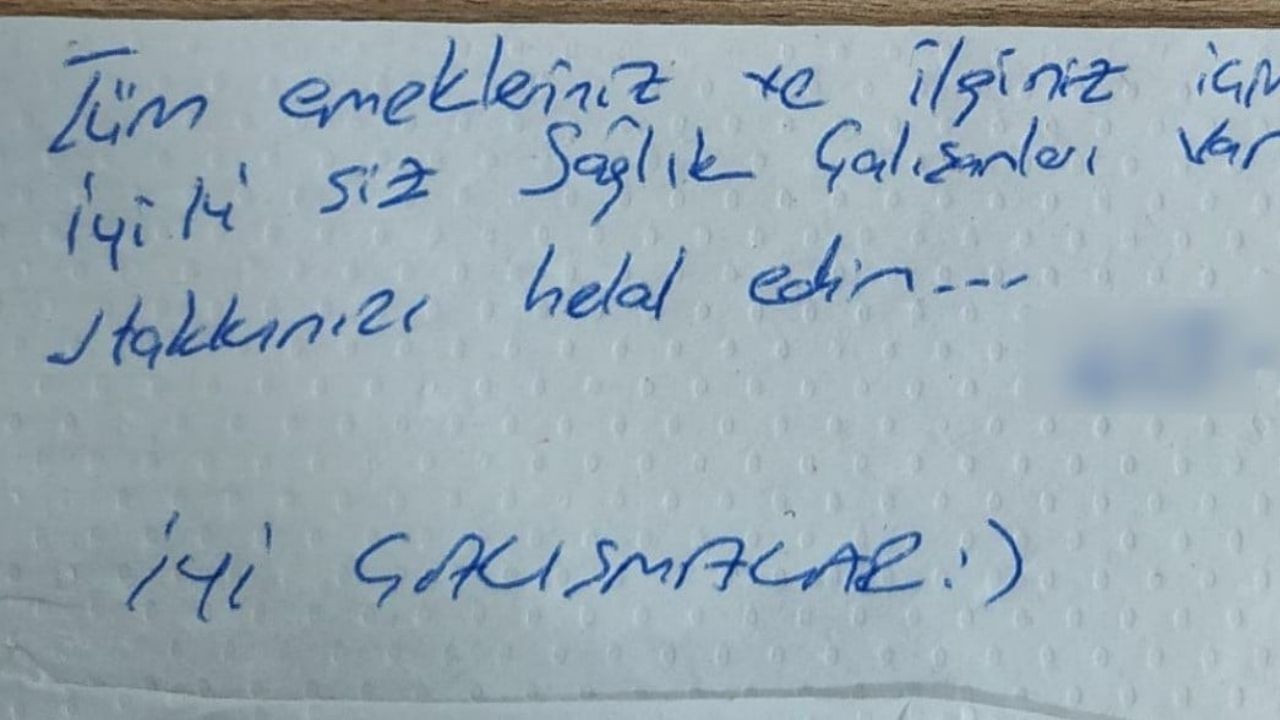 Tüm emekleriniz ve ilginiz için
iyi ki siz Sağlık Çalışanları var
Hakkınızı helal edin...
iyi ÇALIŞMALAR :)